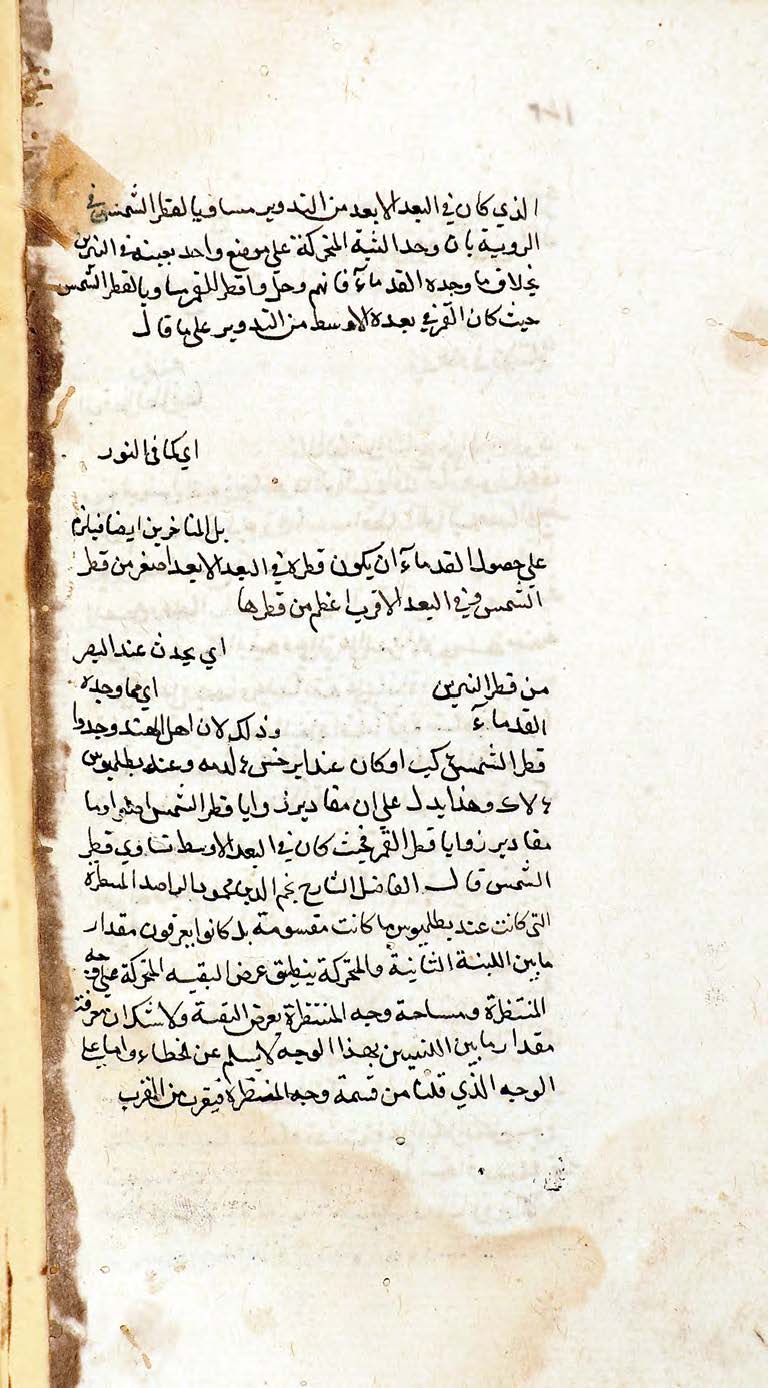 الذي كان في البعد الابعد من التدوير مساويا لقطر الشمس في
الروية بان وجد الثقبة المتحركة علي موضع واحد بعينه في النيرين
بخلاف ما وجده القدمآء فانهم وجدوا قطر القمر مساويا لقطر الشمس
حيث كان القمر في بعده الاوسط من التدوير علي ما قال
اي كما في النور
بل المتاخرين ايضا فيلزم
علي حصول القدمآء ان يكون قطره في البعد الابعد اصغر من قطر
الشمس وفي البعد الاقرب اعظم من قطرها
اي يحدث عند البصر
من قطر النيرين اي مما وجده
القدمآء وذلك لان اهل الهند وجدوا
قطر الشمس كب او كان عند ابرخس وعند بطلميوس
وهذا يدل علي ان مقادير زوايا قطر الشمس
مقادير زوايا قطر القمر فحيث كان في البعد الاوسط تساوي قطر
الشمس قال الفاضل الشارح نجم الدين محمود الراصد المسطرة
التي كانت عند بطلميوس ما كانت مقسومة بل كانوا يعرفون مقدار
ما بين اللبنة الثانية والمتحركة ينطبق عرض البقيه المتحركة علي وجه
المنتظرة ومساحة وجه المنتظرة بعرض البقية ولا شك ان معرفة
مقدار ما بين اللبنتين بهذا الوجه لا يسلم عن الخطاء واما علي
الوجه الذي قلنا من قسمة وجه المنتظرة فيقرب من القرب